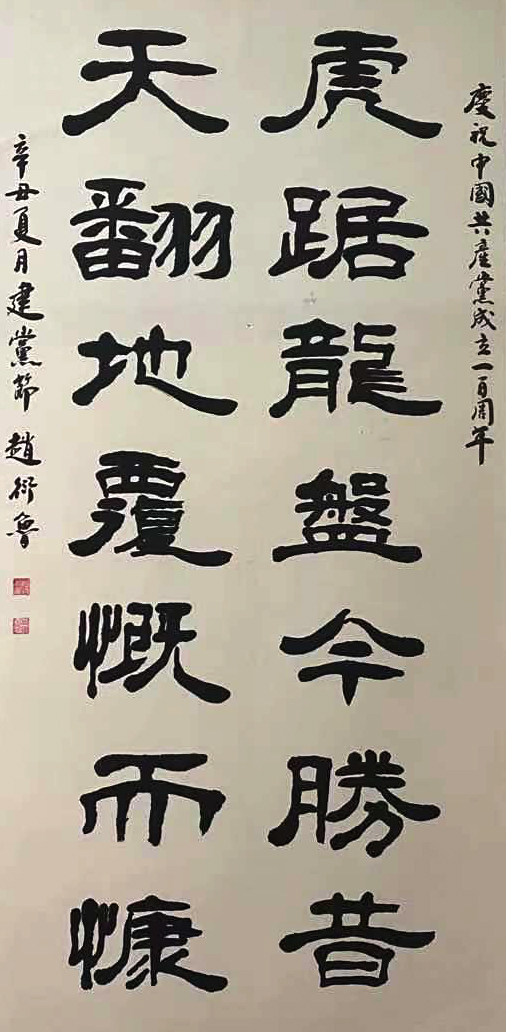 慶祝中國共産黨成立一百周年
虎踞龍盤今勝昔
天翻地覆慨而慷
辛丑夏月建黨節 趙衍魯